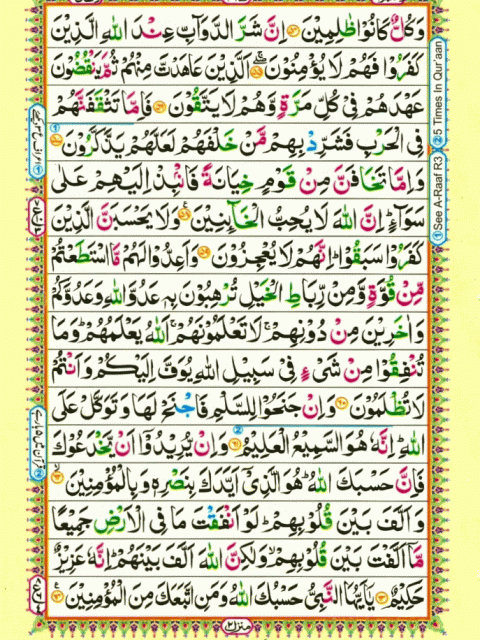 وَكُلٌّ كَانُوْا ظٰلِمِيْنَ ۝۵۴ اِنَّ شَرَّ الدَّوَآبِّ عِنْدَ اللّٰهِ الَّذِيْنَ
كَفَرُوْا فَهُمْ لَا يُؤْمِنُوْنَ ۝۵۵ اَلَّذِيْنَ عَاهَدْتَّ مِنْهُمْ ثُمَّ يَنْقُضُوْنَ
عَهْدَهُمْ فِيْ كُلِّ مَرَّةٍ وَّهُمْ لَا يَتَّقُوْنَ ۝۵۶ فَاِمَّا تَثْقَفَنَّهُمْ
فِي الْحَرْبِ فَشَرِّدْ بِهِمْ مَّنْ خَلْفَهُمْ لَعَلَّهُمْ يَذَّكَّرُوْنَ ۝۵۷
وَاِمَّا تَخَافَنَّ مِنْ قَوْمٍ خِيَانَةً فَانْۢبِذْ اِلَيْهِمْ عَلٰى
سَوَآءٍ ؕ اِنَّ اللّٰهَ لَا يُحِبُّ الْخَآئِنِيْنَ ۝۵۸ وَلَا يَحْسَبَنَّ الَّذِيْنَ
كَفَرُوْا سَبَقُوْا ؕ اِنَّهُمْ لَا يُعْجِزُوْنَ ۝۵۹ وَاَعِدُّوْا لَهُمْ مَّا اسْتَطَعْتُمْ
مِّنْ قُوَّةٍ وَّمِنْ رِّبَاطِ الْخَيْلِ تُرْهِبُوْنَ بِهٖ عَدُوَّ اللّٰهِ وَعَدُوَّكُمْ
وَاٰخَرِيْنَ مِنْ دُوْنِهِمْ ۚ لَا تَعْلَمُوْنَهُمْ ۚ اَللّٰهُ يَعْلَمُهُمْ ؕ وَمَا
تُنْفِقُوْا مِنْ شَيْءٍ فِيْ سَبِيْلِ اللّٰهِ يُوَفَّ اِلَيْكُمْ وَاَنْتُمْ
لَا تُظْلَمُوْنَ ۝۶۰ وَاِنْ جَنَحُوْا لِلسَّلْمِ فَاجْنَحْ لَهَا وَتَوَكَّلْ عَلَى
اللّٰهِ ؕ اِنَّهٗ هُوَ السَّمِيْعُ الْعَلِيْمُ ۝۶۱ وَاِنْ يُّرِيْدُوْۤا اَنْ يَّخْدَعُوْكَ
فَاِنَّ حَسْبَكَ اللّٰهُ ؕ هُوَ الَّذِيْۤ اَيَّدَكَ بِنَصْرِهٖ وَبِالْمُؤْمِنِيْنَ ۝۶۲
وَاَلَّفَ بَيْنَ قُلُوْبِهِمْ ؕ لَوْ اَنْفَقْتَ مَا فِي الْاَرْضِ جَمِيْعًا
مَّاۤ اَلَّفْتَ بَيْنَ قُلُوْبِهِمْ ۙ وَلٰكِنَّ اللّٰهَ اَلَّفَ بَيْنَهُمْ ؕ اِنَّهٗ عَزِيْزٌ
حَكِيْمٌ ۝۶۳ يٰۤاَيُّهَا النَّبِيُّ حَسْبُكَ اللّٰهُ وَمَنِ اتَّبَعَكَ مِنَ الْمُؤْمِنِيْنَ ۝۶۴
منزل۲
① See A-Raaf R3 ② 5 Times In Qur'aan